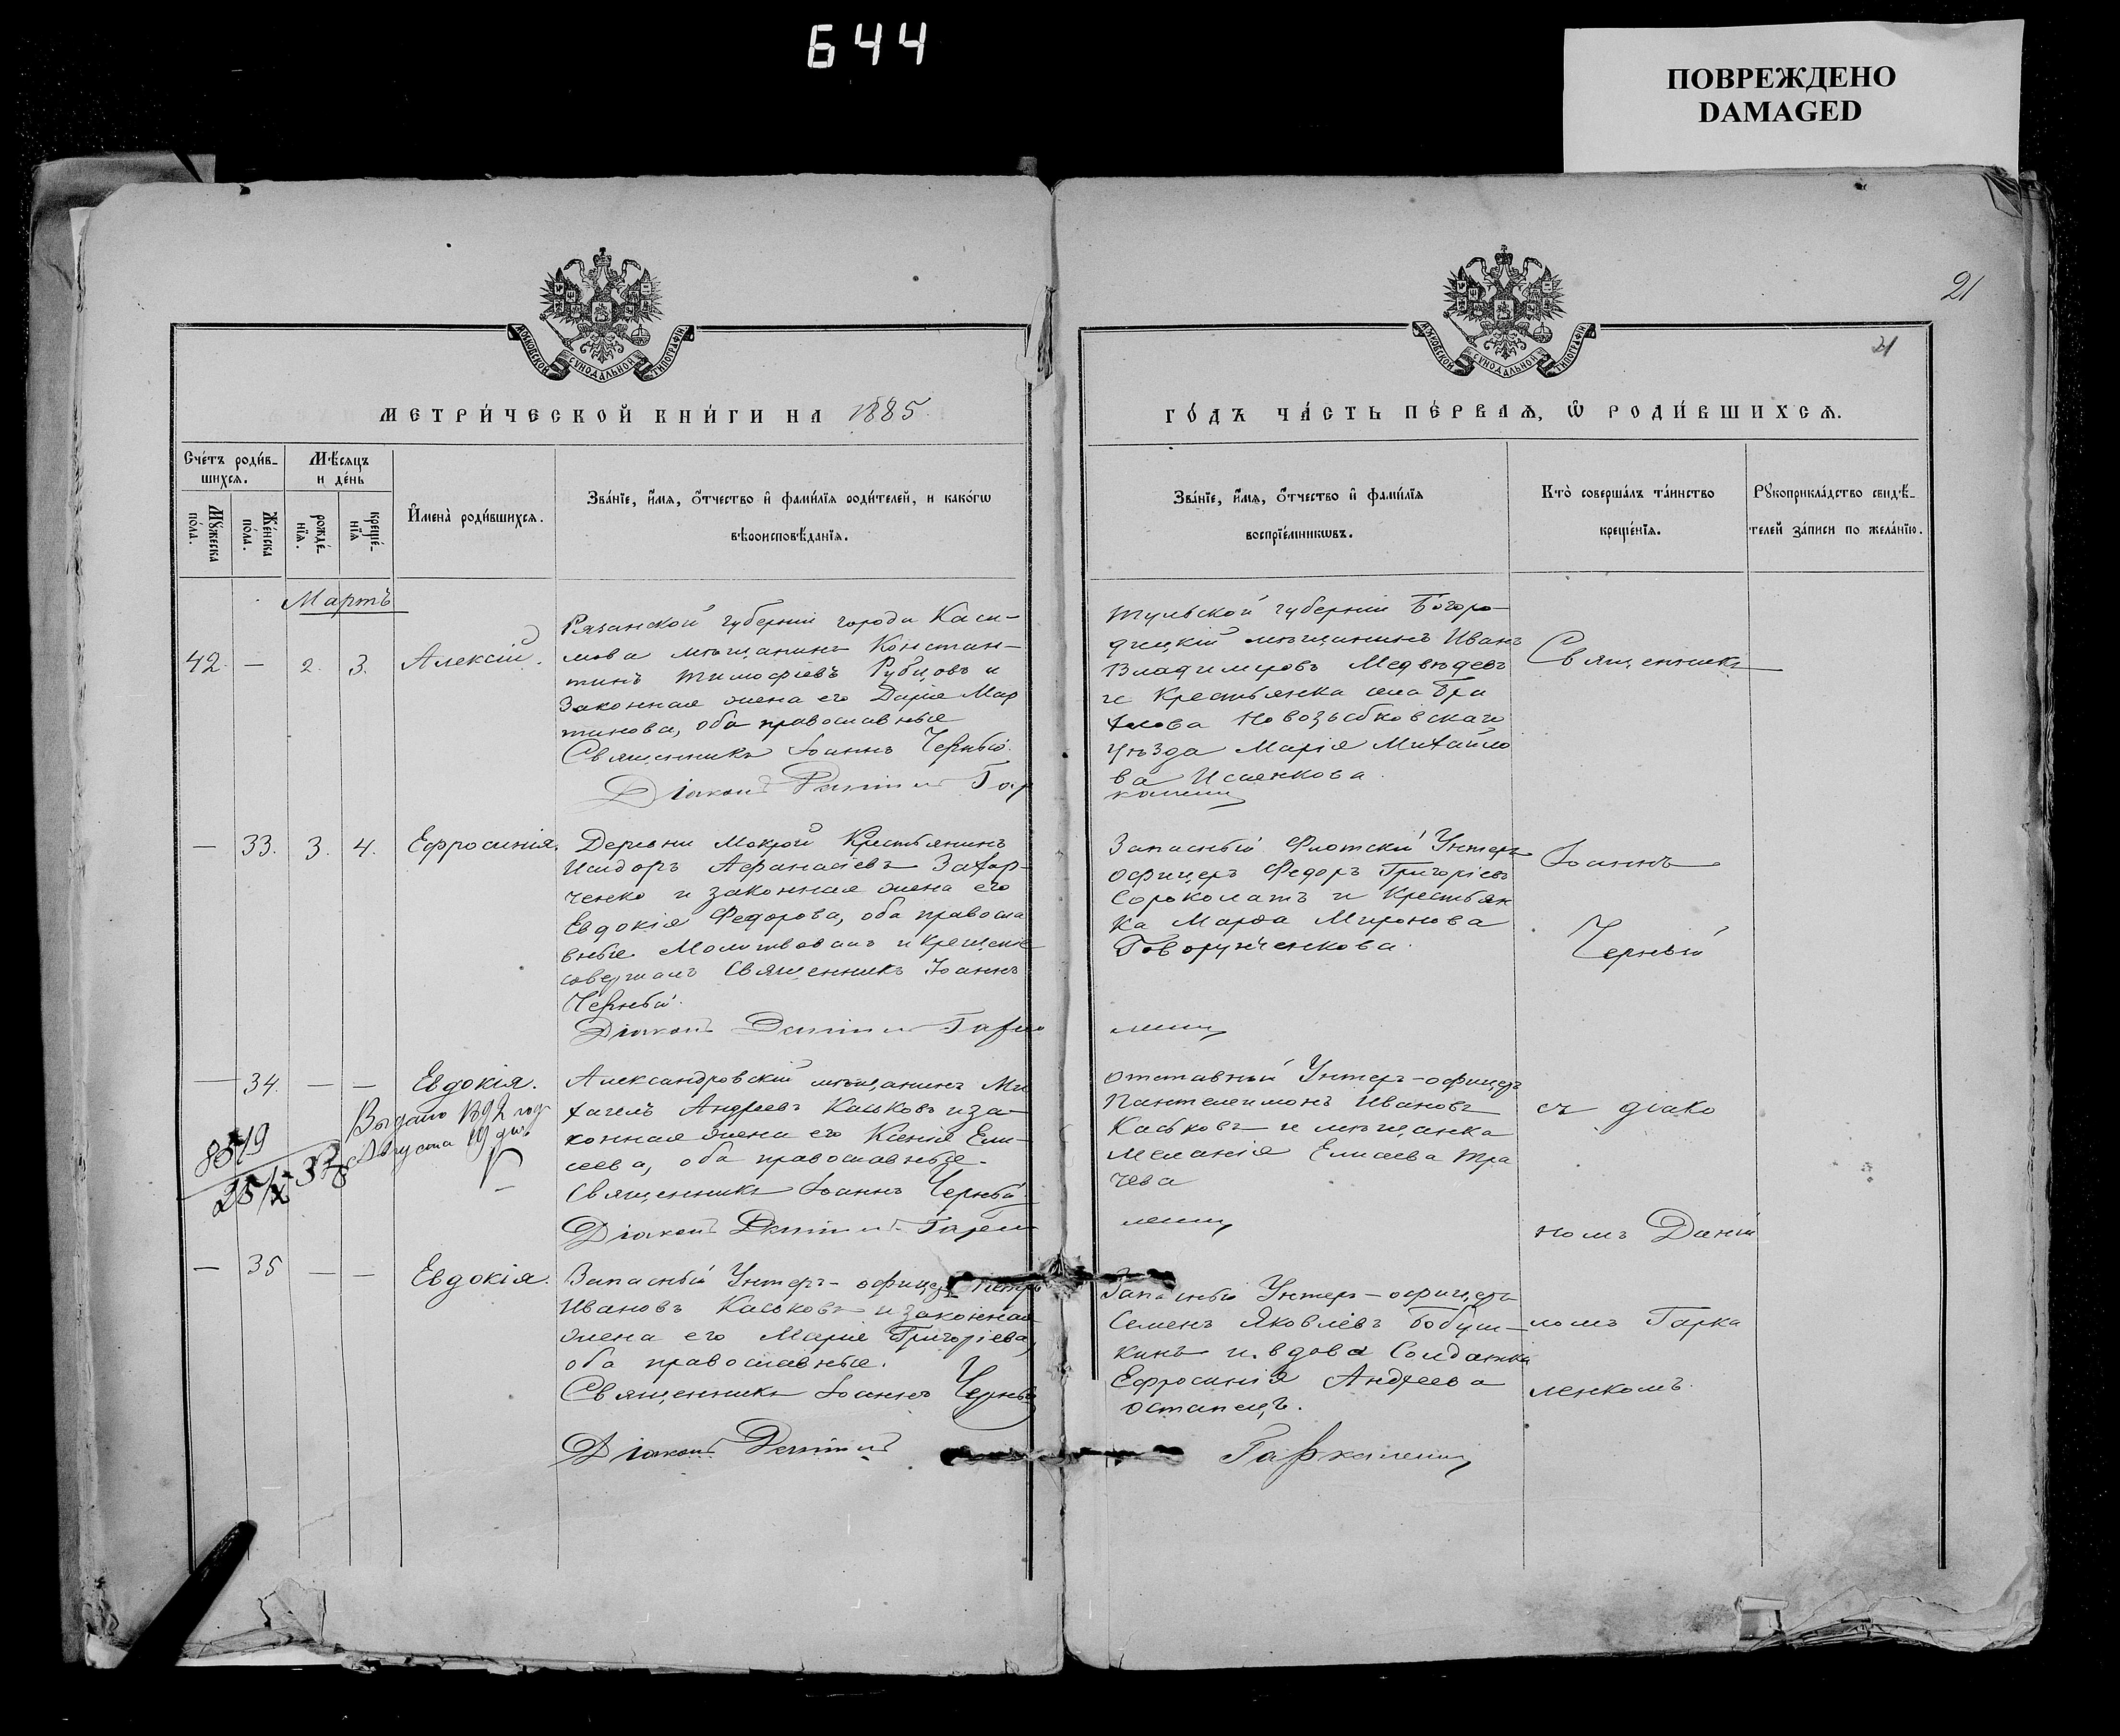 644
ПОВРЕЖДЕНО
DAMAGED
21
21
МОСКОВСКОЙ СѴНОДАЛЬНОЙ ТИПОГРАФІИ
МОСКОВСКОЙ СѴНОДАЛЬНОЙ ТИПОГРАФІИ
МЕТРИ́ЧЕСКОЙ КНИ́ГИ НА 1885
ГО́ДЪ ЧА́СТЬ ПЕ́РВАѦ, Ѽ РОДИ́ВШИХСѦ.
Сче́тъ роди́в-
шихсѧ.
Мꙋ́жеска
по́ла.
Же́нска
по́ла.
Мѣ́сѧцъ
и де́нь
рожде́-
нїѧ.
креще́-
нїѧ
И҆мена̀ роди́вшихсѧ.
Зва́нїе, и҆́мѧ, ѻ҆́тчество и҆ фами́лїѧ роди́телей, и како́гѡ
вѣ́роисповѣ́данїѧ.
Зва́нїе, и҆́мѧ, ѻ҆́тчество и҆ фами́лїѧ
воспрїе́мникѡвъ.
Кто̀ соверша́лъ та́инство
креще́нїѧ.
Рꙋкоприкла́дство свидѣ́-
телей за́писи по жела́нїю.
Мартъ
42. — 2. 3. Алексій.
Рязанской губерніи города Каси-
мова мѣщанинъ Констан-
тинъ Тимофіевъ Рубцовъ и
Законная жена его Дарія Мар
тинова, оба православные
Священникъ Іоаннъ Черный.
Діаконъ Даніилъ Гар
Тульской губерніи Богоро-
дицкій мѣщанинъ Иванъ
Владиміровъ Медвѣдевъ
и Крестьянка села
Новозыбковскаго
уѣзда Марія Михайло
ва Исаенкова.
Священникъ
— 33. 3. 4. Ефросинія.
Деревни Мокрой Крестьянинъ
Исидоръ Афанасіевъ Захар-
ченко и законная жена его
Евдокія Федорова, оба правосла
вные Молитвовалъ и крещеніе
совершалъ Священникъ Іоаннъ
Черный.
Діаконъ Даніилъ Гарка
ленко
Запасный Флотскій Унтеръ
офицеръ Федоръ Григоріевъ
Сороколатъ и Крестьян
ка Марфа Миронова
Говорунченкова.
Іоаннъ
Черный
— 34. — — Евдокія.
Выдано 1892 год
Августа 19 дня
Александровскій мѣщанинъ Ми
хаилъ Андреевъ Каськовъ и за-
конная жена его Ксенія Ели-
сеева, оба православные.
Священникъ Іоаннъ Черный
Діаконъ Даніилъ Гарка
ленко
отставный Унтеръ-офицеръ
Пантелеимонъ Ивановъ
Каськовъ и мѣщанка
Меланія Елисеева Тра
чева
съ діако
номъ Даніи
— 35 — — Евдокія.
Запасный Унтеръ-офицеръ Петръ
Ивановъ Каськовъ и законная
жена его Марія Григоріева,
оба православные.
Священникъ Іоаннъ Черный
Діаконъ Даніилъ Гаркаленко
Запасный Унтеръ-офицеръ
Семенъ Яковлевъ Бобуш-
кинъ и вдова Солдатка
Ефросинія Андреева
Остапецъ.
ломъ Гарка
ленкомъ.